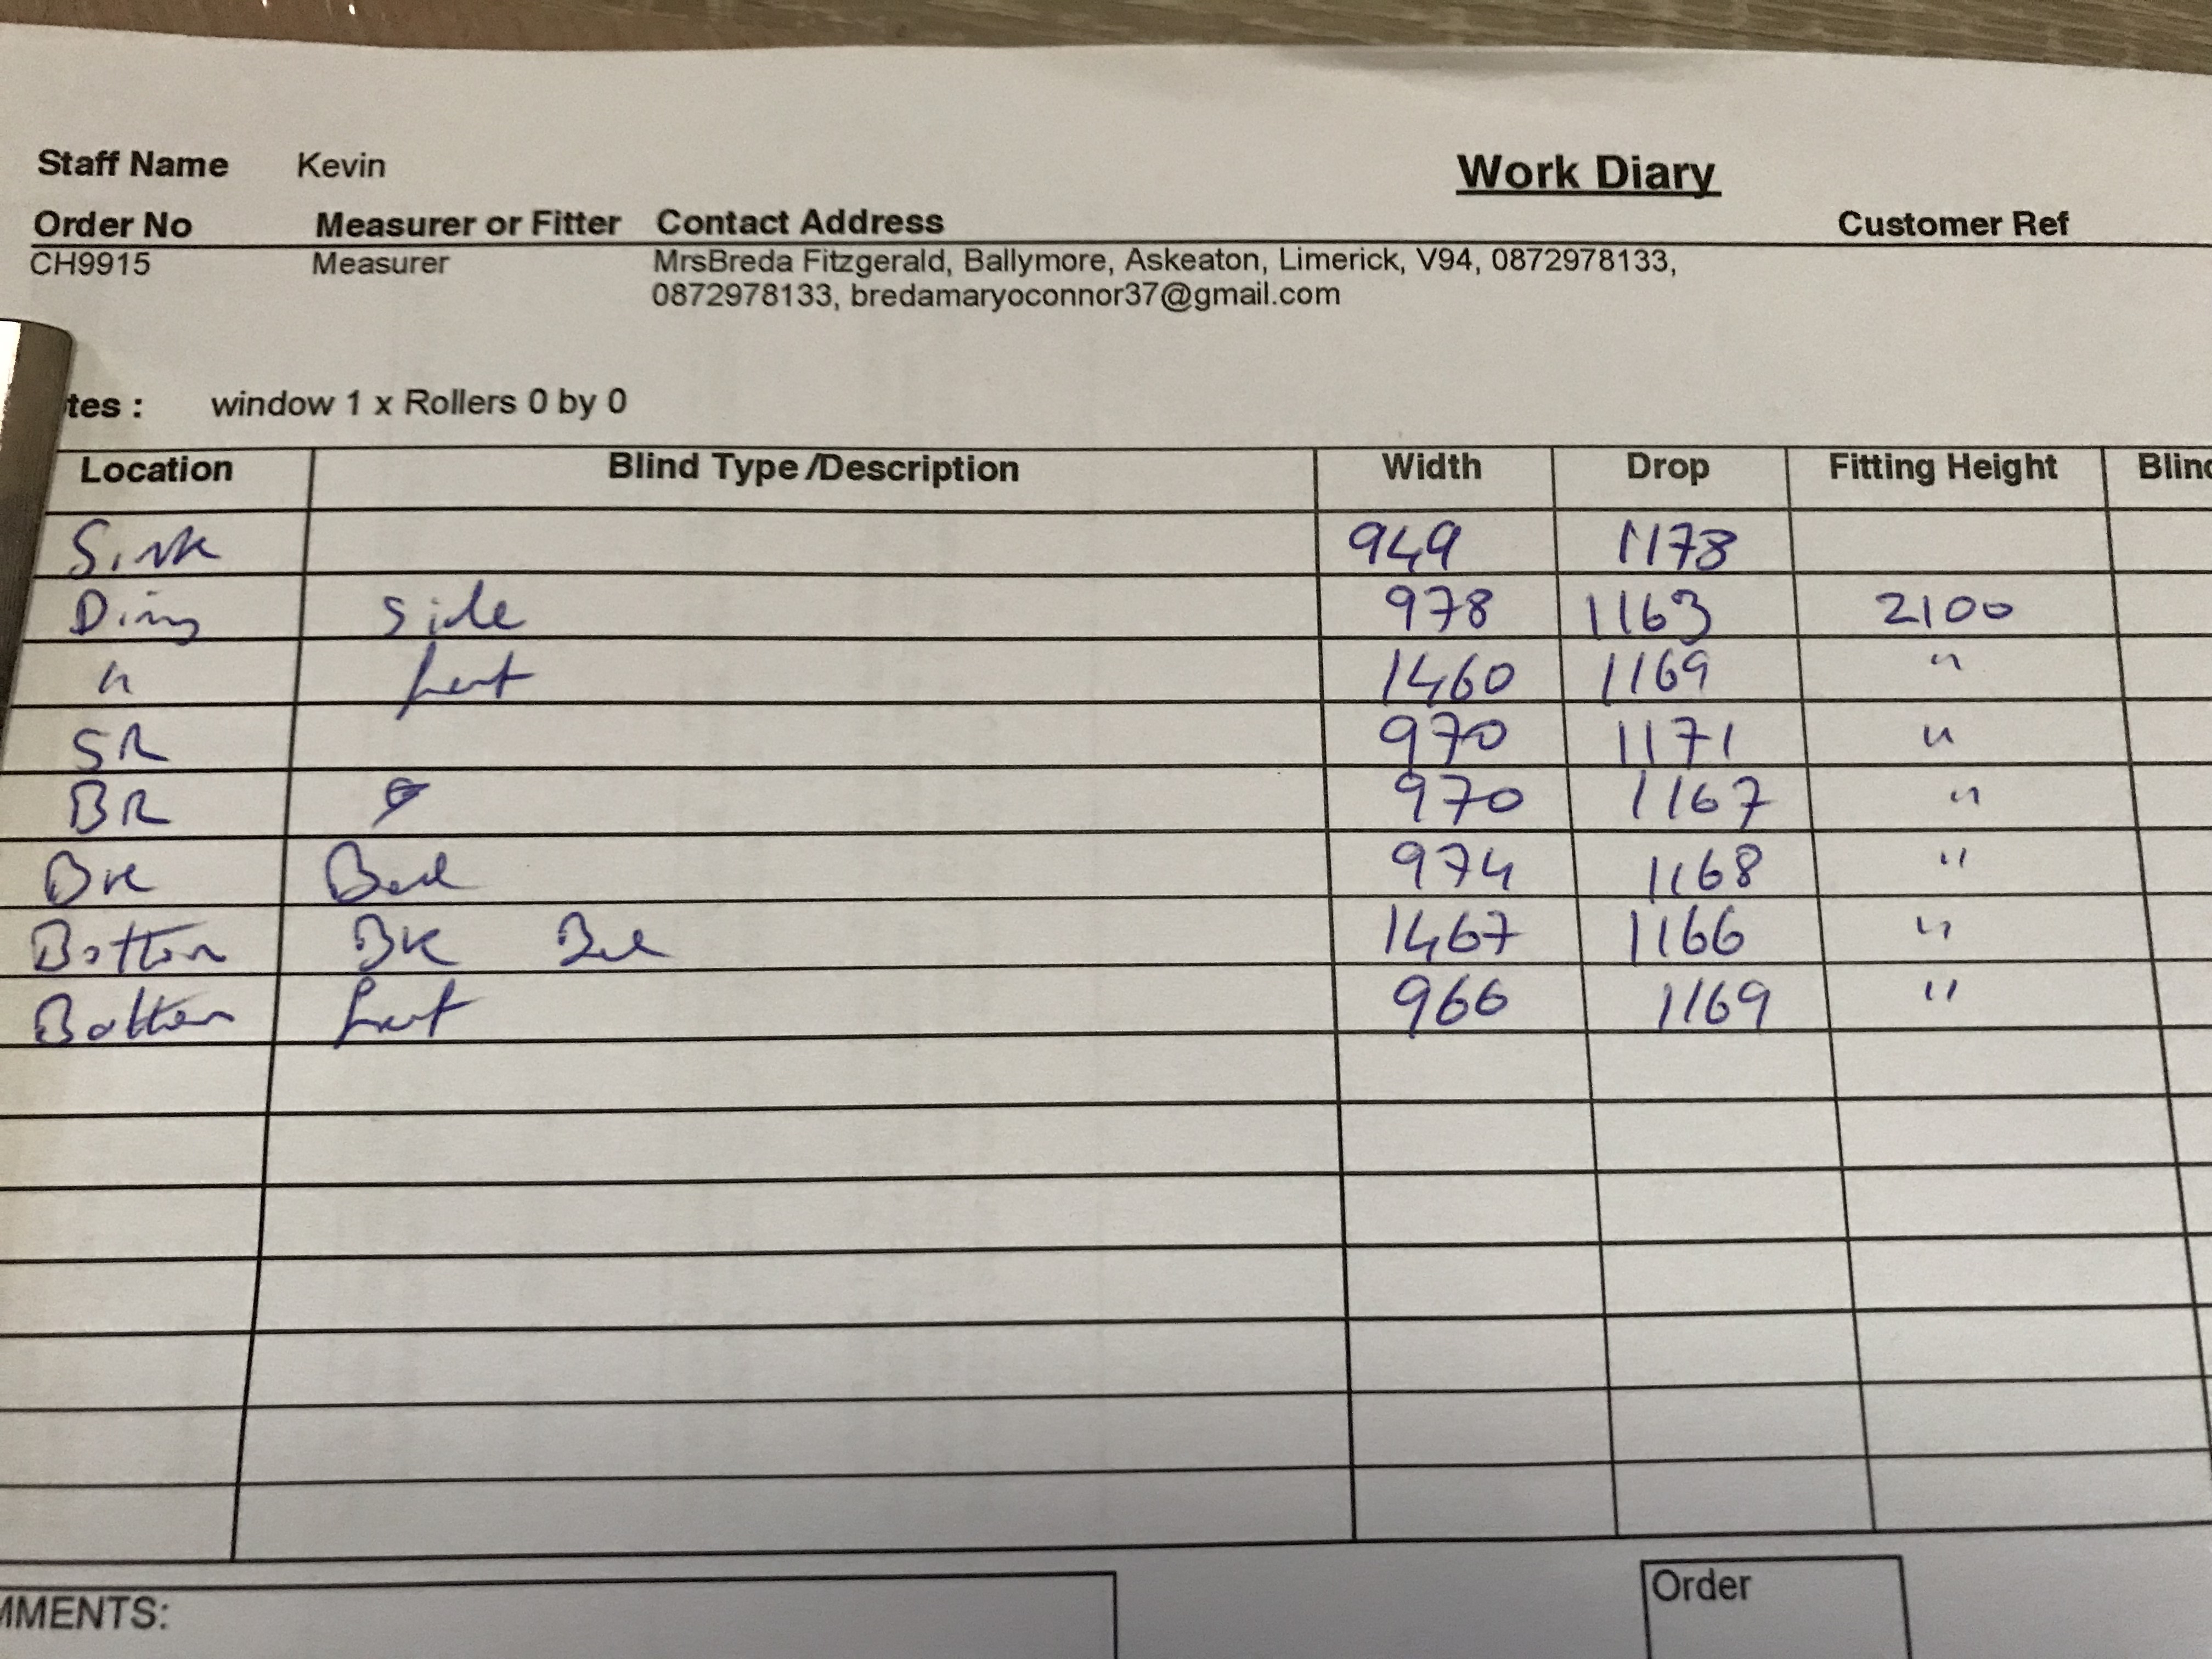 Staff Name Kevin
Work Diary
Order No Measurer or Fitter Contact Address Customer Ref
CH9915 Measurer MrsBreda Fitzgerald, Ballymore, Askeaton, Limerick, V94, 0872978133,
0872978133, bredamaryoconnor37@gmail.com
tes : window 1 x Rollers 0 by 0
Location Blind Type /Description Width Drop Fitting Height Blind
Sink 949 1178
Dining side 978 1163 2100
" front 1460 1169 "
SR 970 1171 "
BR 970 1167 "
974 1168 "
Bottom 1467 1166 "
Bottom front 966 1169 "
MMENTS:
Order